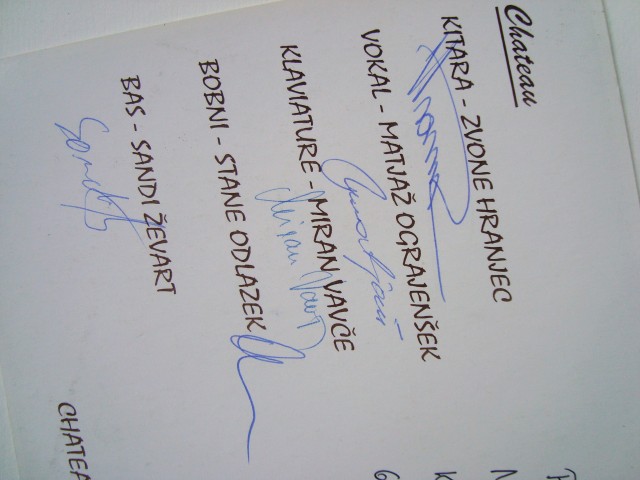 Chateau
KITARA - ZVONE HRANJEC
VOKAL - MATJAŽ OGRAJENŠEK
KLAVIATURE - MIRAN VAVČE
BOBNI - STANE ODLAZEK
BAS - SANDI ŽEVART